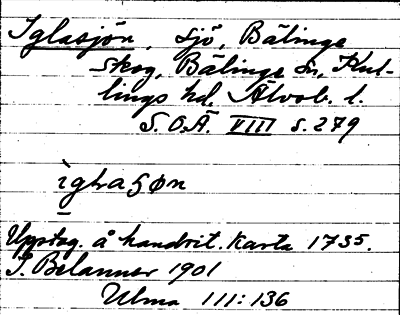 Iglasjön, sjö, Bälinge
skog, Bälinge sn, Kul-
lings hd, Älvsb. l.
S.O.Ä. VIII s. 279
ìglaʃøn
Upptag. å handrit. karta 1735.
I. Belanner 1901
Ulma 111:136